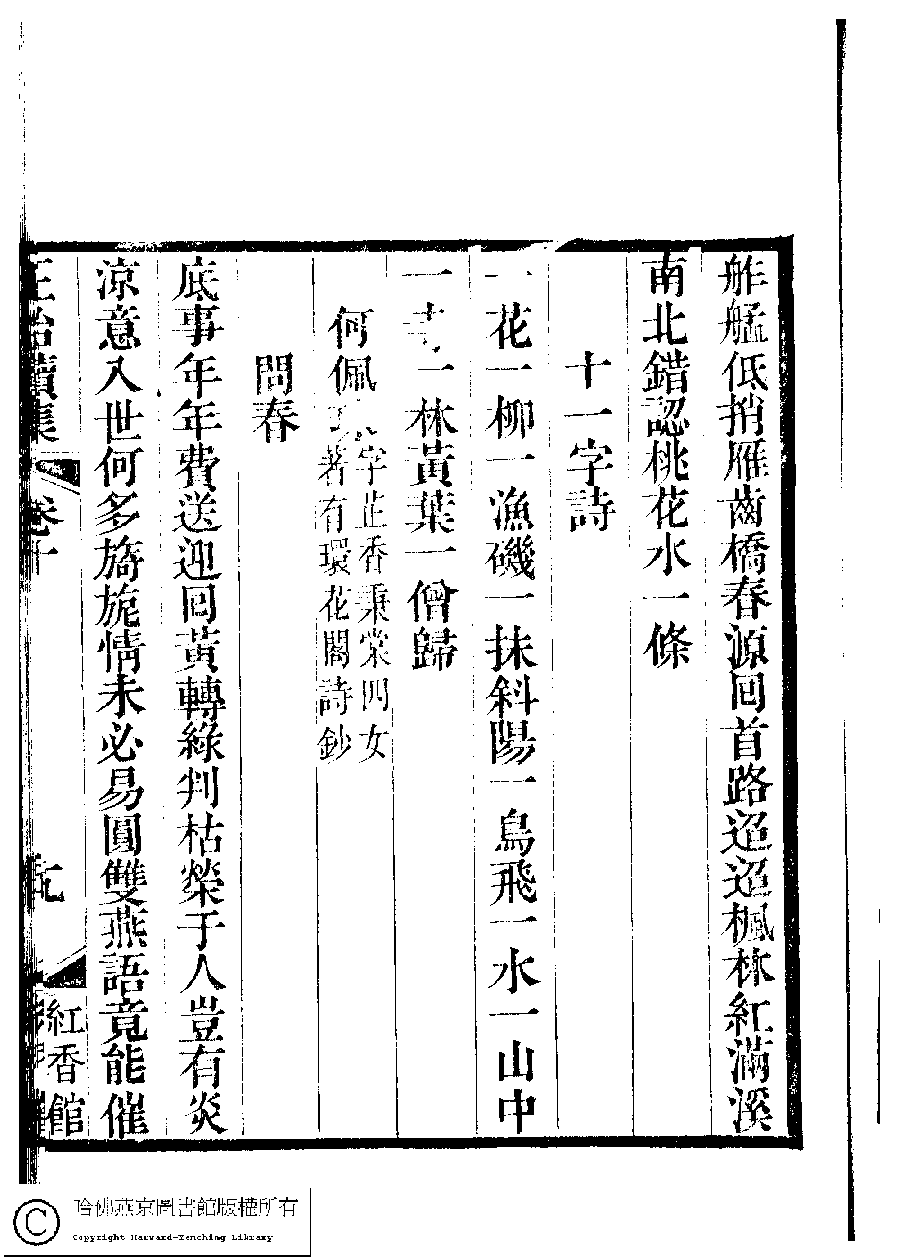 舴艋低捎雁齒橋春源回首路迢迢楓林紅滿溪
南北錯認桃花水一條
十一字詩
一花一柳一漁磯一抹斜陽一鳥飛一水一山中
一寺一林黃葉一僧歸
何佩
字芷香秉棠四女
著有環花閣詩鈔
問春
底事年年費送迎回黃轉綠判枯榮于人豈有炎
涼意入世何多旖旎情未必易圓雙燕語竟能催
正始續集
卷十
紅香館
哈佛燕京圖書館版權所有
Copyright Harvard-Yenching Library